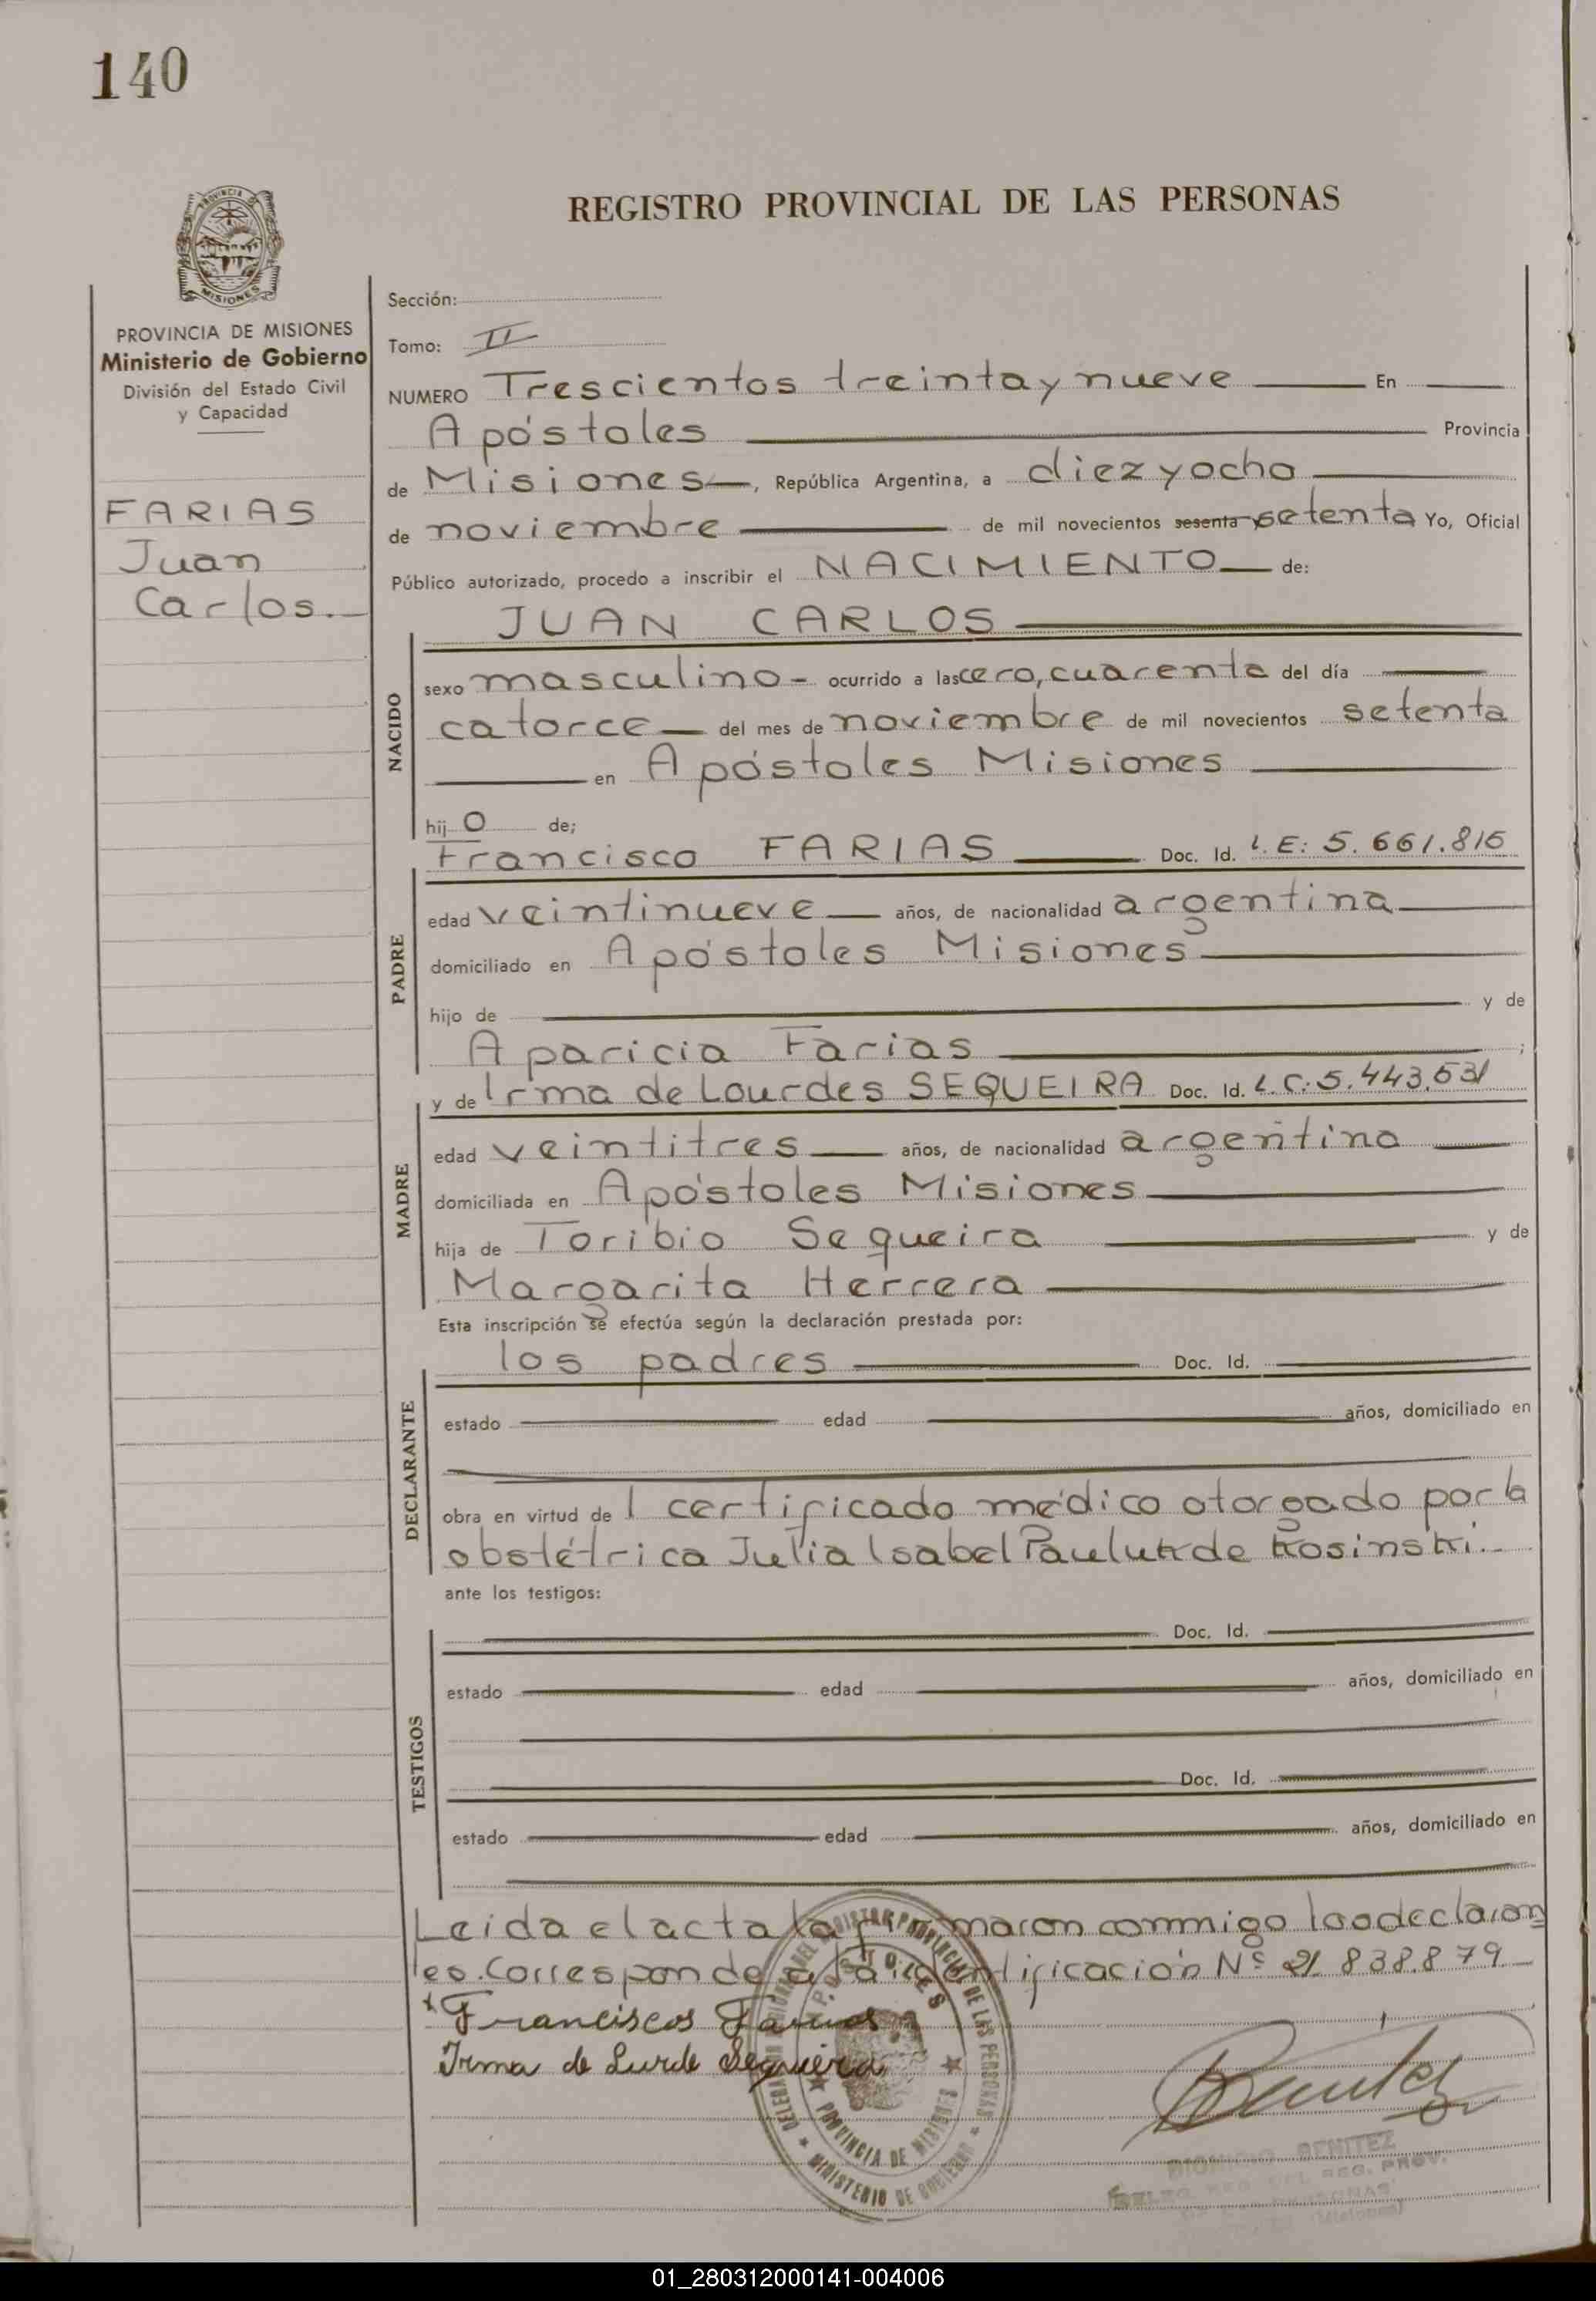 140
REGISTRO PROVINCIAL DE LAS PERSONAS
PROVINCIA DE MISIONES
Ministerio de Gobierno
División del Estado Civil
y Capacidad
FARIAS
Juan
Carlos.
Sección:
Tomo: II
NUMERO Trescientos treinta y nueve En
Apóstoles Provincia
de Misiones, República Argentina, a diez y ocho
de noviembre de mil novecientos sesenta setenta Yo, Oficial
Público autorizado, procedo a inscribir el NACIMIENTO de:
JUAN CARLOS
NACIDO
sexo masculino - ocurrido a las cero, cuarenta del día
catorce del mes de noviembre de mil novecientos setenta
en Apóstoles Misiones
hijo de;
Francisco FARIAS Doc. Id. L.E: 5.661.816
PADRE
edad veintinueve años, de nacionalidad argentina
domiciliado en Apóstoles Misiones
hijo de y de
Aparicia Farias ;
y de Irma de Lourdes SEQUEIRA Doc. Id. L.C: 5.443.531
MADRE
edad veintitres años, de nacionalidad argentina
domiciliada en Apóstoles Misiones
hija de Toribio Sequeira y de
Margarita Herrera
Esta inscripción se efectúa según la declaración prestada por:
los padres Doc. Id.
DECLARANTE
estado edad años, domiciliado en
obra en virtud de l certificado médico otorgado por la
obstétrica Julia Isabel Pauluk de Kosinski.-
ante los testigos:
TESTIGOS
Doc. Id.
estado edad años, domiciliado en
Doc. Id.
estado edad años, domiciliado en
Leida el acta la firmaron conmigo los declaran
tes. Corresponde a la identificación Nº 21.838.879
Francisco Farias
Irma de Lurde Sequeira
APOSTOLES
PROVINCIA DE MISIONES
MINISTERIO DE GOBIERNO
Benitez
BENITEZ
REG. PROV.
01_280312000141-004006